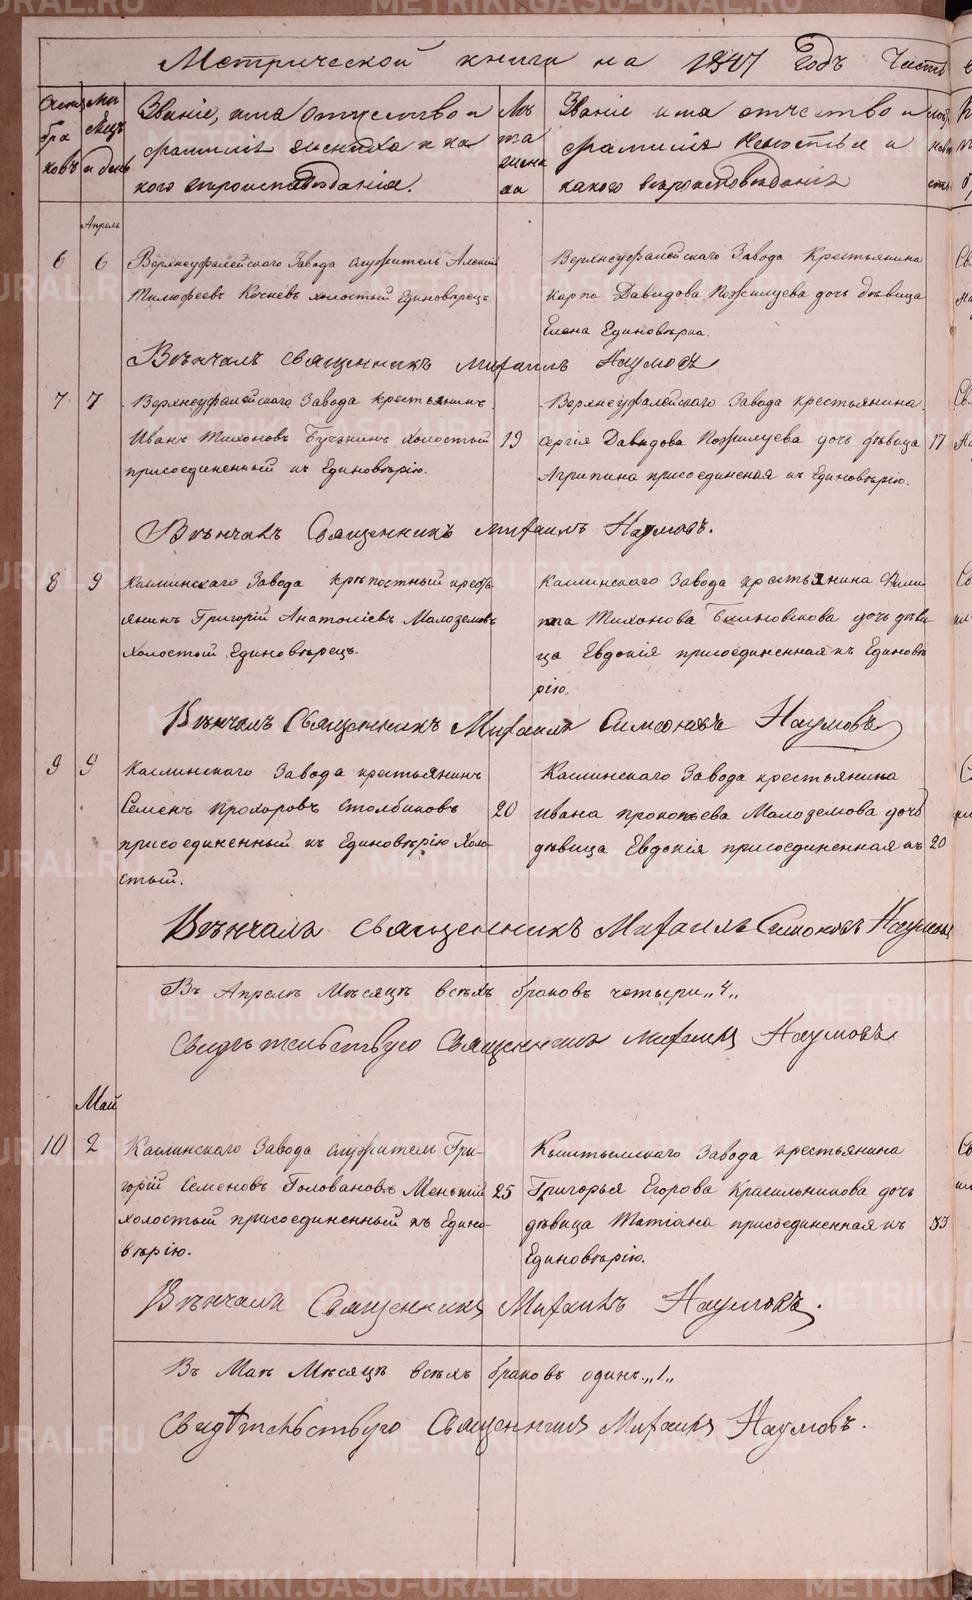 Метрической книги на 1847 Годъ Часть
Счетъ бра ковъ
Мѣ сяцъ и день
Званіе, имя отчество и
фамилія жениха и ка
кого вѣроисповѣданія.
Лѣ та жени ха
Званіе имя отчество и
фамилія Невѣсты и
какого вѣроисповѣданія
Апрель
6 6 Верхнеуфалейскаго Завода служитель Алексѣй
Тимофеевъ Кочневъ холостый Единовѣрецъ
Верхнеуфалейскаго Завода Крестьянина
Карпа Давидова Пожилцева дочь дѣвица
Елена Единовѣрка.
Вѣнчалъ священникъ Михаилъ Наумовъ
7 7 Верхнеуфалейскаго Завода крестьянинъ
Иванъ Тихоновъ холостый 19
присоединенный къ Единовѣрію.
Верхнеуфалейскаго Завода крестьянина
Сергія Давыдова Пожилцева дочь дѣвица 17
Агрипина присоединеная къ Единовѣрію.
Вѣнчалъ Священникъ Михаилъ Наумовъ.
8 9 Каслинскаго Завода крѣпостный кресть
янинъ Григорій Анатоліевъ Малоземовъ
Холостый Единовѣрецъ.
Каслинскаго Завода крестьянина Фили
ппа Тихонова дочь дѣви
ца Евдокія присоединенная къ Единовѣ
рію.
Вѣнчалъ Священникъ Михаилъ Симеоновъ Наумовъ
9 9 Каслинскаго Завода крестьянинъ
Семенъ Прохоровъ Столбиковъ 20
присоединенный къ Единовѣрію Холо-
стый.
Каслинскаго Завода крестьянина
Ивана прокопьева Малоземова дочь
дѣвица Евдокія присоединенная къ 20
Вѣнчалъ священникъ Михаилъ Симоновъ Наумовъ
Въ Апрелѣ Мѣсяцѣ всѣхъ браковъ четыри „4„
Свидѣтельствую Священникъ Михаилъ Наумовъ
Май
10 2 Каслинскаго Завода служитель Гри-
горій Семеновъ Головановъ Меньшій 25
холостый присоединенный къ Едино-
вѣрію.
Кыштымскаго Завода крестьянина
Григорья Егорова Красильникова дочь
дѣвица Татіана присоединенная къ 33
Единовѣрію.
Вѣнчалъ Священникъ Михаилъ Наумовъ.
Въ Маѣ Мѣсяцѣ всѣхъ браковъ одинъ „1„
Свидѣтельствую Священникъ Михаилъ Наумовъ.
METRIKI.GASO-URAL.RU